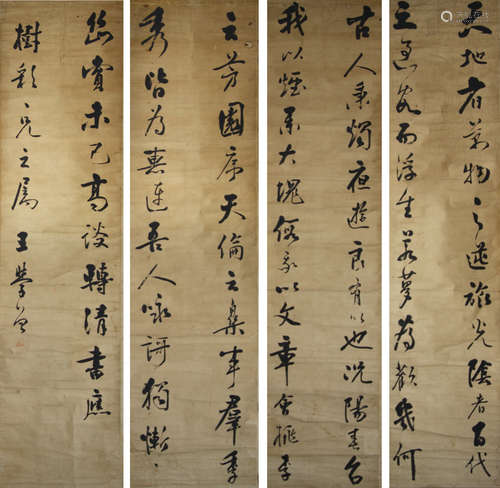 天地者萬物之逆旅光陰者百代
之過客而浮生若夢為歡幾何
古人秉燭夜遊良有以也況陽春召
我以煙景大塊假我以文章會桃李
之芳園序天倫之樂事羣季
秀皆為惠連吾人詠謌獨慚
幽賞未已高談轉清書應
樹彩兄之屬 王學